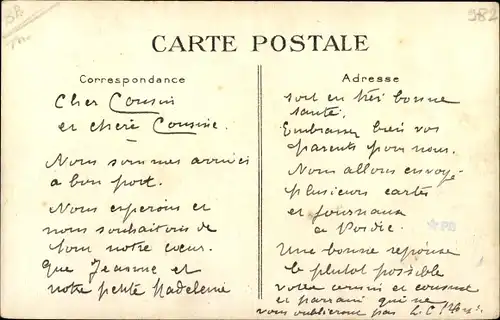 982
CARTE POSTALE
Correspondance
Cher Cousin
et chère Cousine.
Nous sommes arrivés
a bon port.
Nous esperons et
nous souhaitons de
tout notre cœur.
Que Jeanne et
notre petite Madeleine
Adresse
soit en très bonne
santé.
Embrasser bien vos
parents pour nous.
Nous allons envoyé
plusieurs cartes
et journaux
a
Une bonne reponse
le plutot possible
votre cousin et cousine
et parrain qui ne
vous oublieront pas L.C.